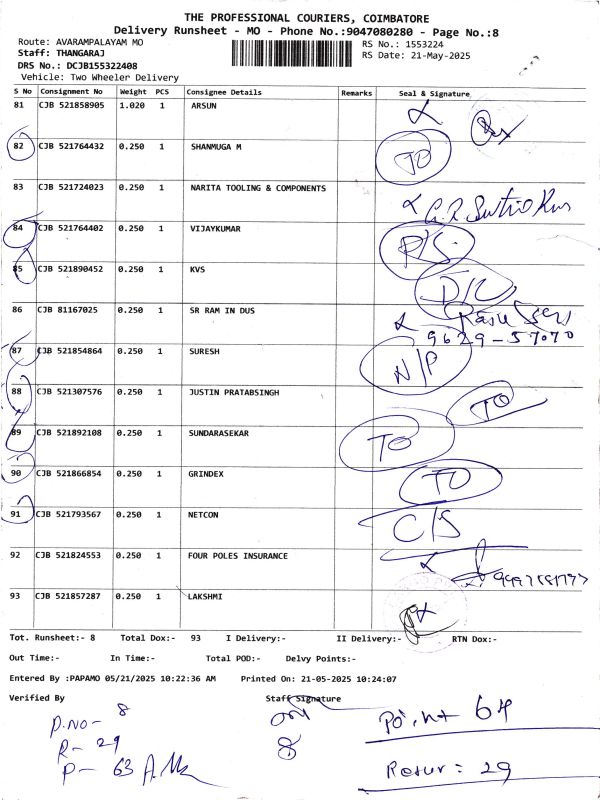 THE PROFESSIONAL COURIERS, COIMBATORE
Delivery Runsheet - MO - Phone No.:9047080280 - Page No.:8
Route: AVARAMPALAYAM MO RS No.: 1553224
Staff: THANGARAJ RS Date: 21-May-2025
DRS No.: DCJB155322408
Vehicle: Two Wheeler Delivery
S No Consignment No Weight PCS Consignee Details Remarks Seal & Signature
81 CJB 521858905 1.020 1 ARSUN
82 CJB 521764432 0.250 1 SHANMUGA M TO
83 CJB 521724023 0.250 1 NARITA TOOLING & COMPONENTS
84 CJB 521764402 0.250 1 VIJAYKUMAR P/S
85 CJB 521890452 0.250 1 KVS D/L
86 CJB 81167025 0.250 1 SR RAM IN DUS
9629-57070
87 CJB 521854864 0.250 1 SURESH N/P
88 CJB 521307576 0.250 1 JUSTIN PRATABSINGH TO
89 CJB 521892108 0.250 1 SUNDARASEKAR TO
90 CJB 521866854 0.250 1 GRINDEX TO
91 CJB 521793567 0.250 1 NETCON C/S
92 CJB 521824553 0.250 1 FOUR POLES INSURANCE
93 CJB 521857287 0.250 1 LAKSHMI
Tot. Runsheet:- 8 Total Dox:- 93 I Delivery:- II Delivery:- RTN Dox:-
Out Time:- In Time:- Total POD:- Delvy Points:-
Entered By :PAPAMO 05/21/2025 10:22:36 AM Printed On: 21-05-2025 10:24:07
Verified By Staff Signature
P.NO- 8
R- 29
P- 63
8
Point 64
Retur: 29